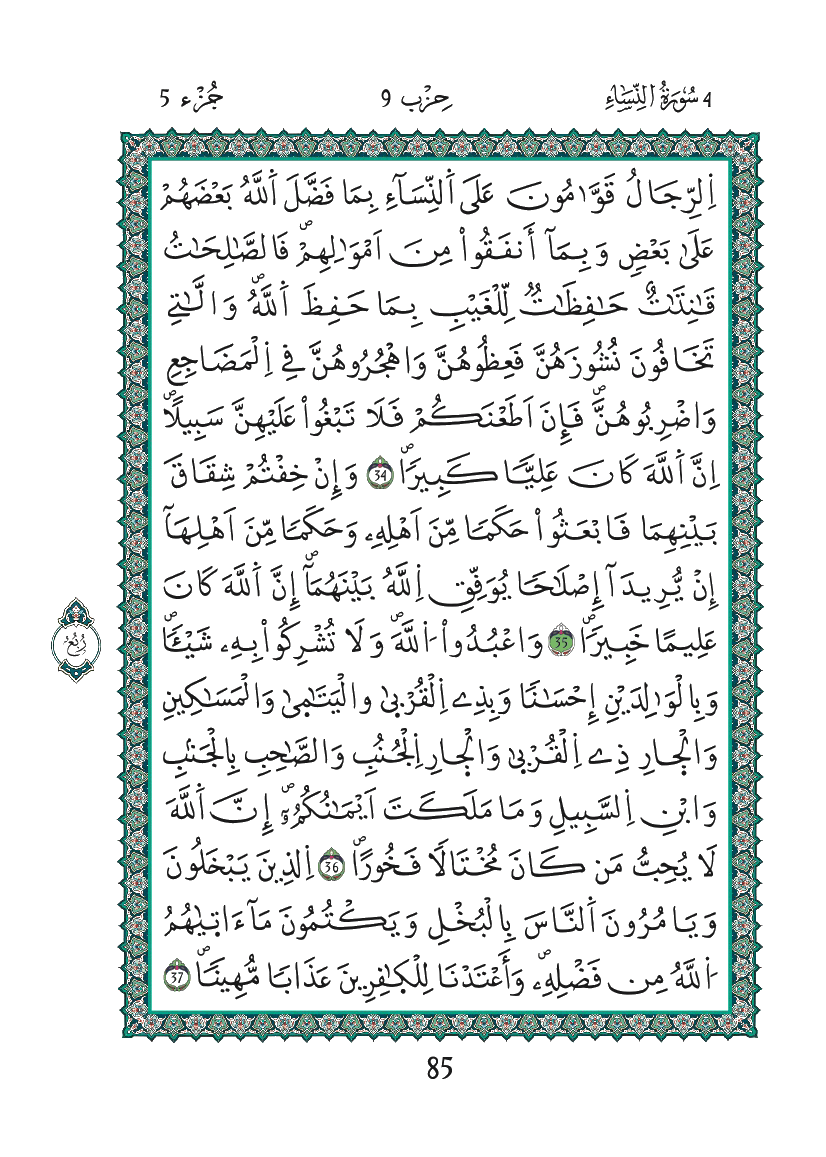 4 سُورَةُ النِّسَاءِ
حِزْب 9
جُزْء 5
اِ۬لرِّجَالُ قَوَّٰمُونَ عَلَى اَ۬لنِّسَآءِ بِمَا فَضَّلَ اَ۬للَّهُ بَعْضَهُمْ
عَلَىٰ بَعْضٖ وَبِمَآ أَنفَقُواْ مِنَ اَمْوَٰلِهِمْۖ فَالصَّٰلِحَٰتُ
قَٰنِتَٰتٌ حَٰفِظَٰتٞ لِّلْغَيْبِ بِمَا حَفِظَ اَ۬للَّهُۖ وَالَّٰتِے
تَخَافُونَ نُشُوزَهُنَّ فَعِظُوهُنَّ وَاهْجُرُوهُنَّ فِے اِ۬لْمَضَاجِعِ
وَاضْرِبُوهُنَّۖ فَإِنَ اَطَعْنَكُمْ فَلَا تَبْغُواْ عَلَيْهِنَّ سَبِيلًاۖ
اِنَّ اَ۬للَّهَ كَانَ عَلِيّٗا كَبِيرٗاۖ 34 وَإِنْ خِفْتُمْ شِقَاقَ
بَيْنِهِمَا فَابْعَثُواْ حَكَمٗا مِّنَ اَهْلِهِۦ وَحَكَمٗا مِّنَ اَهْلِهَآ
إِنْ يُّرِيدَآ إِصْلَٰحٗا يُوَفِّقِ اِ۬للَّهُ بَيْنَهُمَآۖ إِنَّ اَ۬للَّهَ كَانَ
عَلِيمًا خَبِيرٗاۖ 35 وَاعْبُدُواْ اُ۬للَّهَۖ وَلَا تُشْرِكُواْ بِهِۦ شَيْـٔٗاۖ
وَبِالْوَٰلِدَيْنِ إِحْسَٰنٗا وَبِذِے اِ۬لْقُرْبَىٰ وَالْيَتَٰمَىٰ وَالْمَسَٰكِينِ
وَالْجَارِ ذِے اِ۬لْقُرْبَىٰ وَالْجَارِ اِ۬لْجُنُبِ وَالصَّاحِبِ بِالْجَنۢبِ
وَابْنِ اِ۬لسَّبِيلِ وَمَا مَلَكَتَ اَيْمَٰنُكُمُۥٓۖ إِنَّ اَ۬للَّهَ
لَا يُحِبُّ مَن كَانَ مُخْتَالٗا فَخُورًاۖ 36 اِ۬لذِينَ يَبْخَلُونَ
وَيَامُرُونَ اَ۬لنَّاسَ بِالْبُخْلِ وَيَكْتُمُونَ مَآ ءَاتَىٰهُمُ
اُ۬للَّهُ مِن فَضْلِهِۦۖ وَأَعْتَدْنَا لِلْكٰ۪فِرِينَ عَذَابٗا مُّهِينٗاۖ 37
رُبُعُ
85